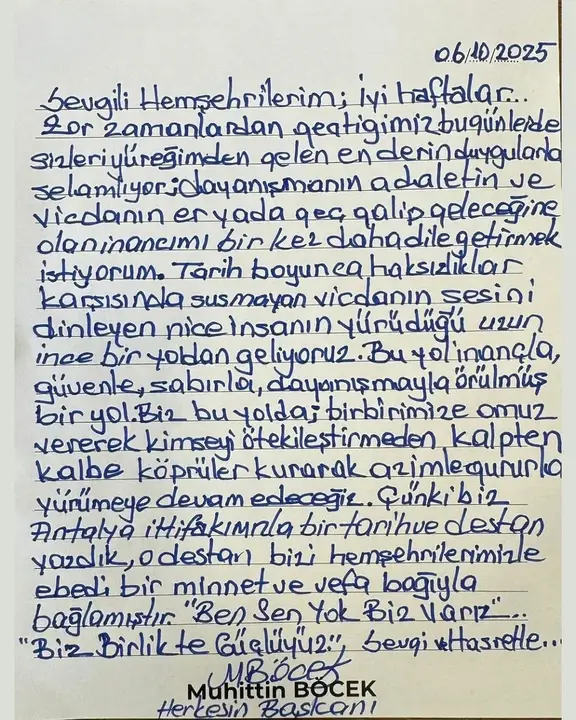 06/10/2025
Sevgili Hemşehrilerim; İyi haftalar...
Zor zamanlardan geçtiğimiz bugünlerde
sizleri yüreğimden gelen en derin duygularla
selamlıyor; dayanışmanın adaletin ve
vicdanın er yada geç galip geleceğine
olan inancımı bir kez daha dile getirmek
istiyorum. Tarih boyunca haksızlıklar
karşısında susmayan vicdanın sesini
dinleyen nice insanın yürüdüğü uzun
ince bir yoldan geliyoruz. Bu yol inançla,
güvenle, sabırla, dayanışmayla örülmüş
bir yol. Biz bu yolda; birbirimize omuz
vererek kimseyi ötekileştirmeden kalpten
kalbe köprüler kurarak azimle gururla
yürümeye devam edeceğiz. Çünki biz
Antalya ittifakımızla bir tarih ve destan
yazdık, o destan bizi hemşehrilerimizle
ebedi bir minnet ve vefa bağıyla
bağlamıştır. "Ben Sen Yok Biz Varız"...
"Biz Birlikte Güçlüyüz", Sevgi ve Hasretle...
M.BÖCEK
Muhittin BÖCEK
Herkesin Başkanı